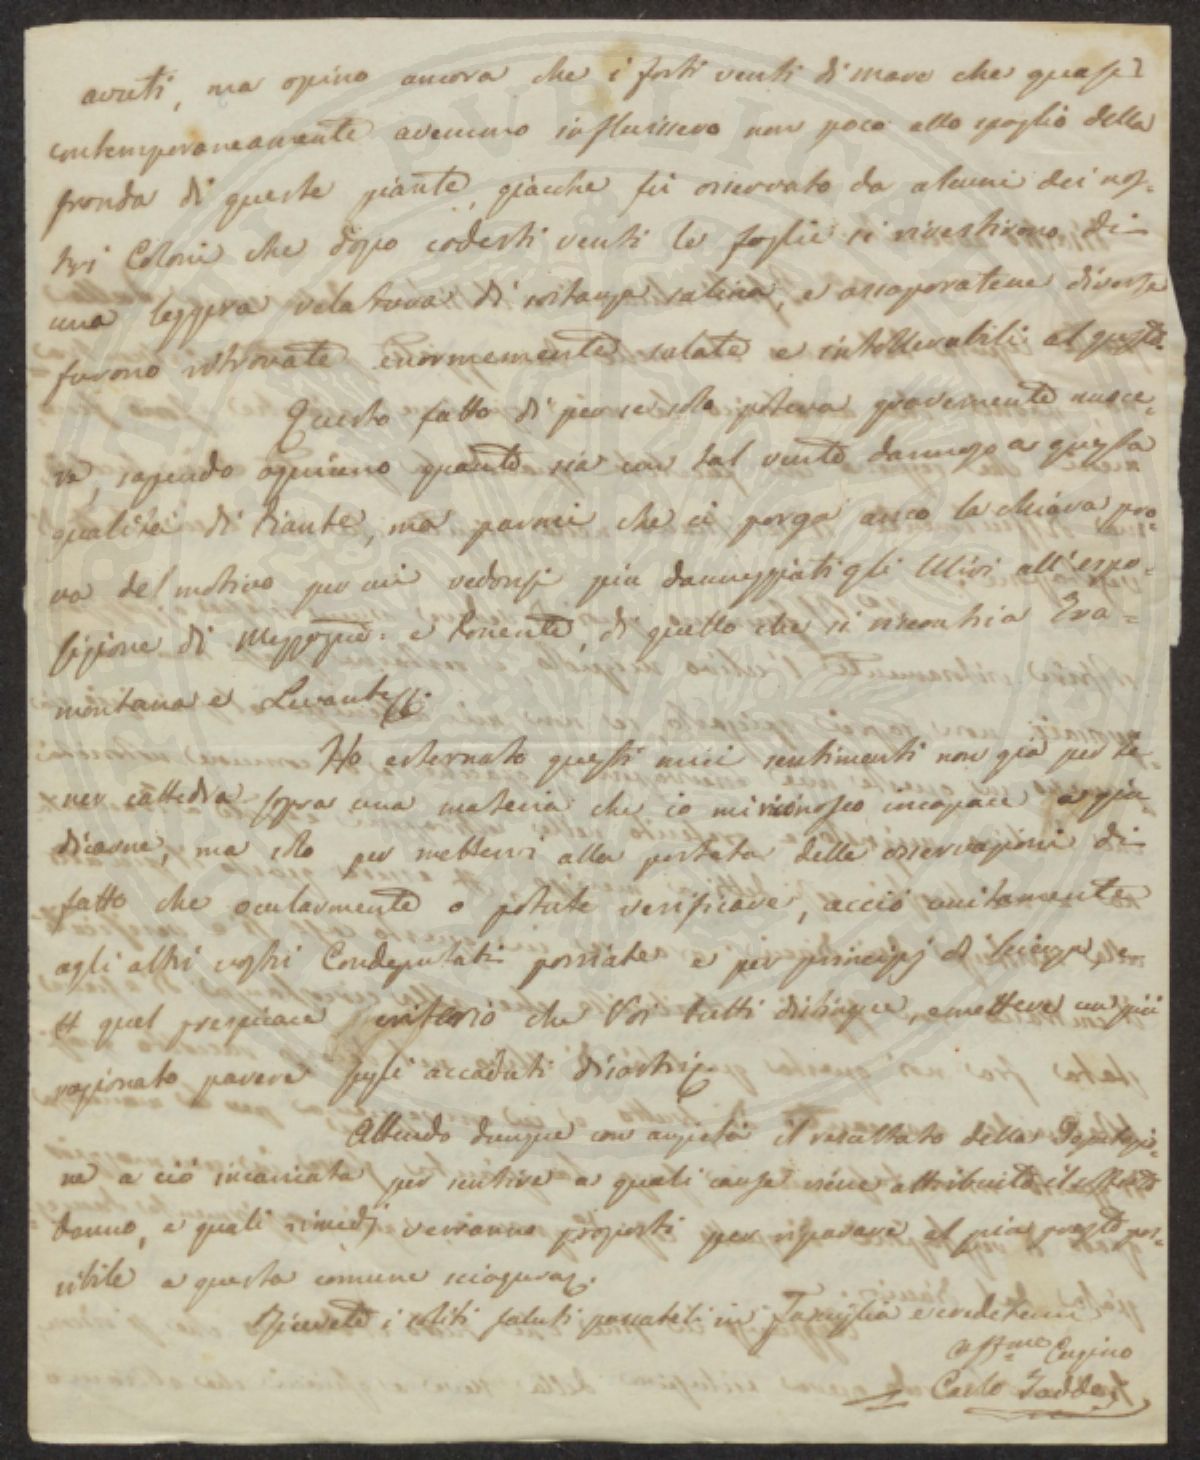 avuti, ma opino ancora che i forti venti di mare che quasi
contemporaneamente avemmo influissero non poco allo spoglio della
fronda di queste piante, giacche fu osservato da alcuni dei nos-
tri Coloni che dopo codesti venti le foglie si rivestirono di
una leggera velatura di sostanza salina, e assaporatene diverse
furono ritrovate enormemente salate e intollerabili al gusto.
Questo fatto di per se solo poteva gravemente nuoce-
re, sapendo ognuno quanto sia un tal vento dannoso a questa
qualità di Piante, ma parmi che ci porga anco la chiara pro-
va del motivo per cui vedonsi più danneggiati gli Ulivi all'espo-
sizione di Mezzogno: e Ponente, di quello che si riscontri a Tra-
montana e Levante
Ho esternato questi miei sentimenti non già per te-
ner cattedra sopra una materia che io mi riconosco incapace a giu-
dicarne, ma solo per mettervi alla portata delle osservazioni di
fatto che ocularmente o potute verificare, acciò unitamente
agli altri vostri Condeputati possiate e per principj di Scienza, e
quel prespicace criterio che Voi tutti distingue, emettere un più
ragionato parere sugli accaduti disastri.
Attendo dunque con ansietà il resultato della Deputazio-
ne a ciò incaricata per sentire a quali cause viene attribuito il sofferto
danno, e quali rimedj verranno proposti per riparare al più presto pos-
sibile a questa comune sciagura.
Ricevete i soliti saluti passateli in Famiglia e credetemi
Affmo Cugino
Carlo Taddei